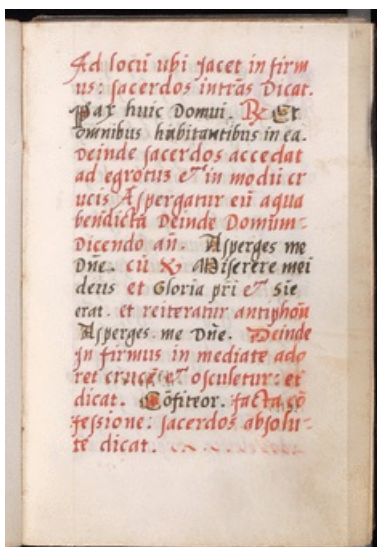 Ad locū ubi jacet in firm
us: sacerdos intrās Dicat.
Pax huic Domui. R Et
omnibus habitantibus in ea.
Deinde sacerdos accedat
ad egrotuʒ et in modū cr
ucis Aspergatur eū aqua
bendicta Deinde Domum-
Dicendo añ. Asperges me
Dñe. cū Miserere mei
deus et Gloria pri et Sic
erat. et reiteratur antiphoñ
Asperges. me Dñe. Deinde
In firmus in mediate ado
ret crucē et osculetur: et
dicat. Cōfiteor. facta cō
fessione: sacerdos absolu-
te dicat.